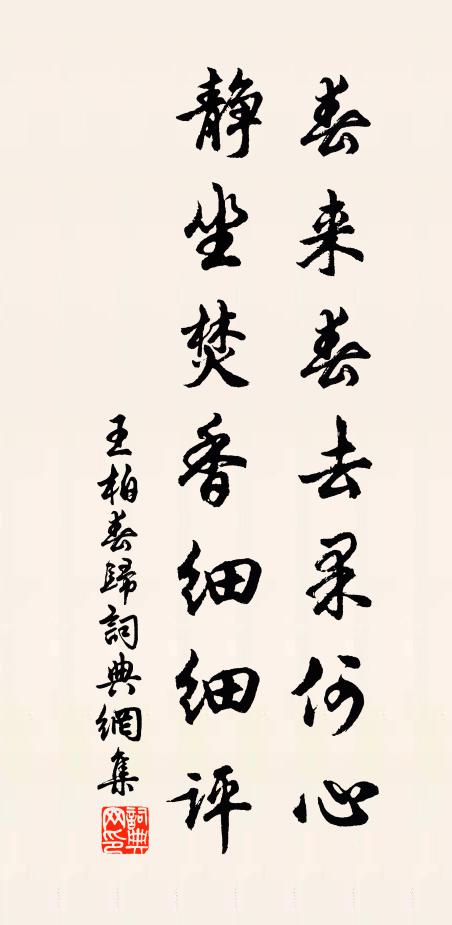 春来春去果何心
静坐焚香细细评
王柏春歸詞典網集
詞典网印